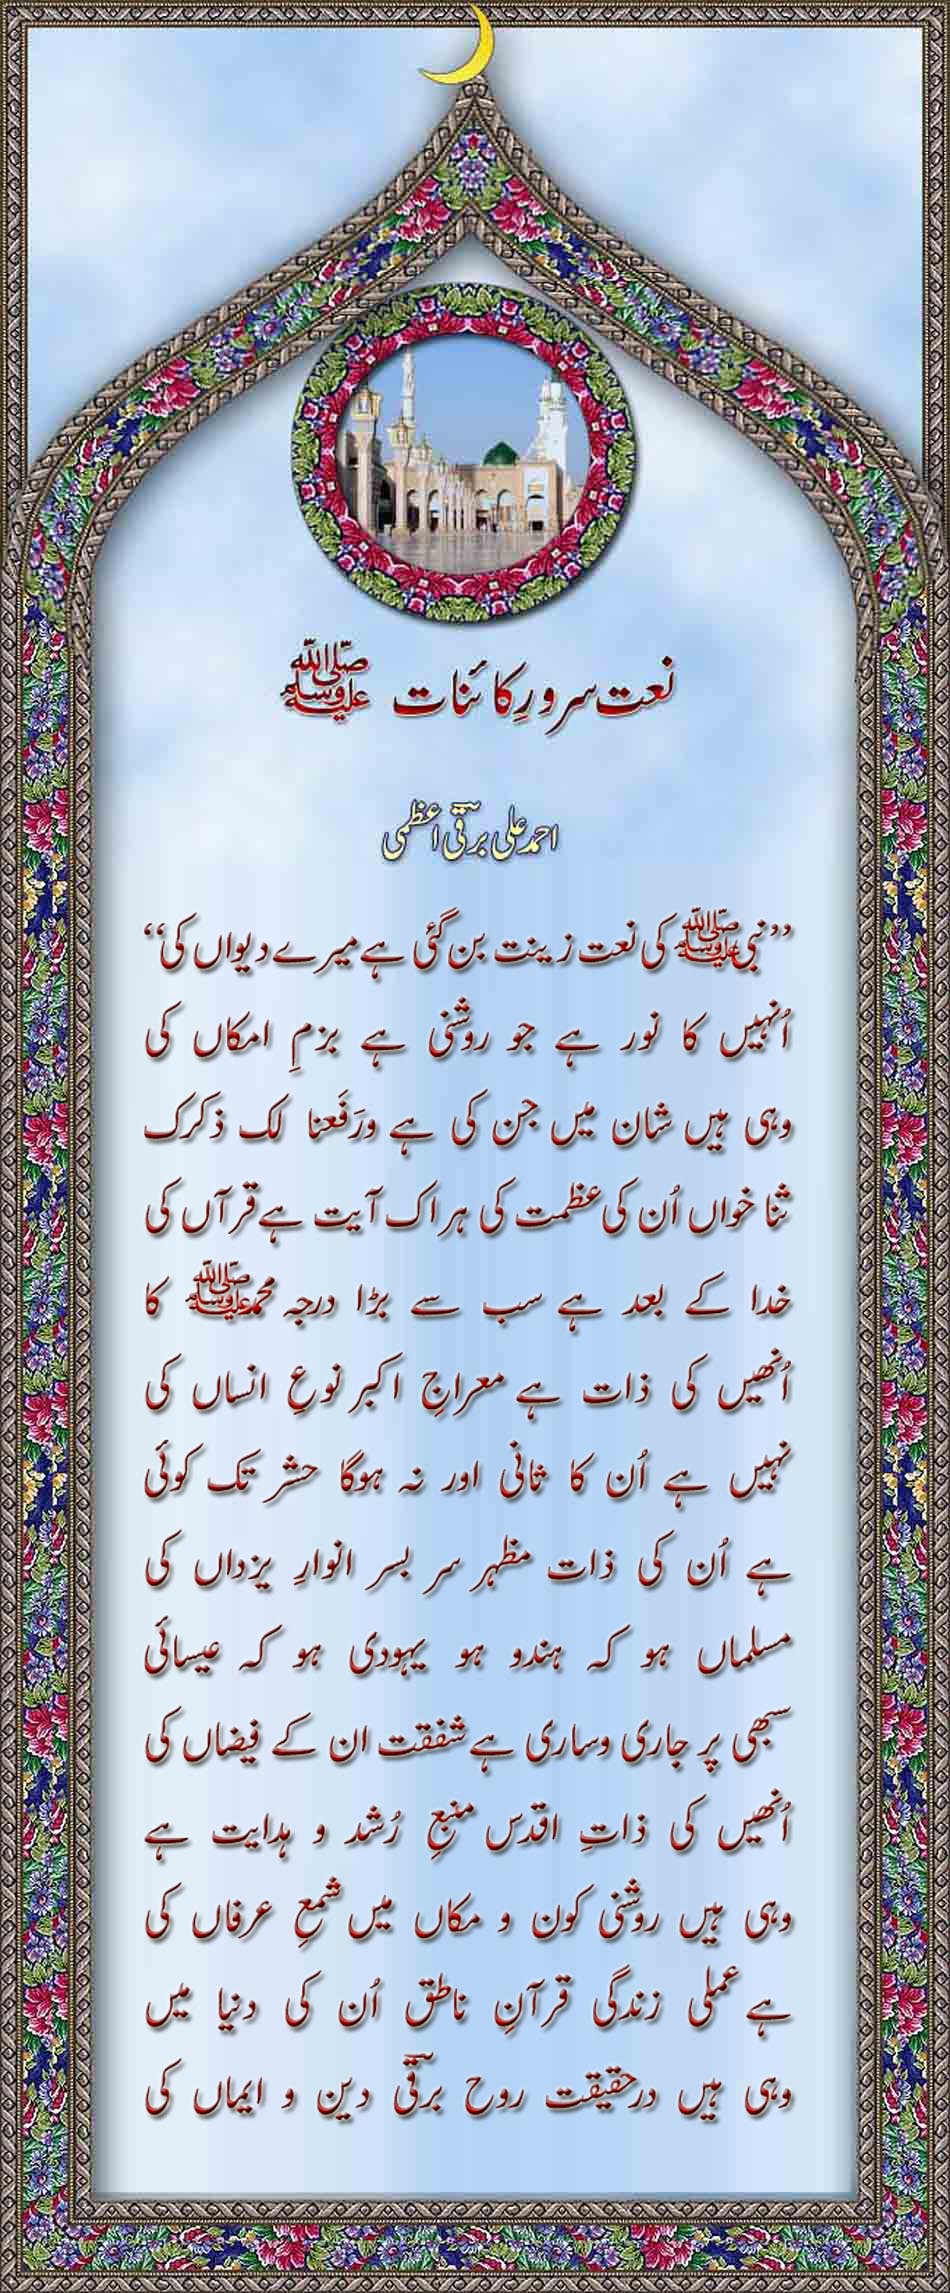 نعت سرورِ کائنات ﷺ
احمد علی برقیؔ اعظمی
’’نبیﷺ کی نعت زینت بن گئی ہے میرے دیواں کی‘‘
اُنہیں کا نور ہے جو روشنی ہے بزمِ امکاں کی
وہی ہیں شان میں جن کی ہے ورَفَعنا لک ذکرک
ثنا خواں اُن کی عظمت کی ہر اک آیت ہے قرآں کی
خدا کے بعد ہے سب سے بڑا درجہ محمدﷺ کا
اُنھیں کی ذات ہے معراجِ اکبر نوعِ انساں کی
نہیں ہے اُن کا ثانی اور نہ ہوگا حشر تک کوئی
ہے اُن کی ذات مظہر سر بسر انوارِ یزداں کی
مسلماں ہو کہ ہندو ہو یہودی ہو کہ عیسائی
سبھی پر جاری وساری ہے شفقت ان کے فیضاں کی
اُنھیں کی ذاتِ اقدس منبعِ رُشد و ہدایت ہے
وہی ہیں روشنی کون و مکاں میں شمعِ عرفاں کی
ہے عملی زندگی قرآنِ ناطق اُن کی دنیا میں
وہی ہیں درحقیقت روح برقیؔ دین و ایماں کی